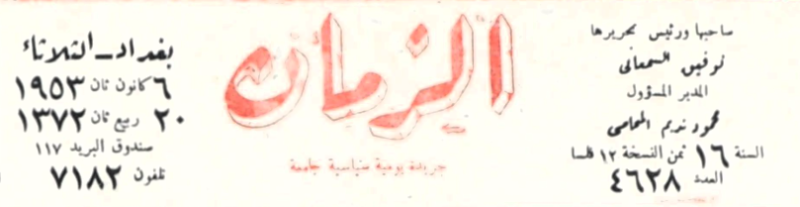 صاحبها ورئيس تحريرها
توفيق السمعاني
المدير المسؤول
محمود نديم المحامي
السنة ١٦ ثمن النسخة ١٢ فلسا
العدد ٤٦٢٨
الزمان
جريدة يومية سياسية جامعة
بغداد - الثلاثاء
٦ كانون ثان ١٩٥٣
٢٠ ربيع ثان ١٣٧٢
صندوق البريد ١١٧
تلفون ٧١٨٢